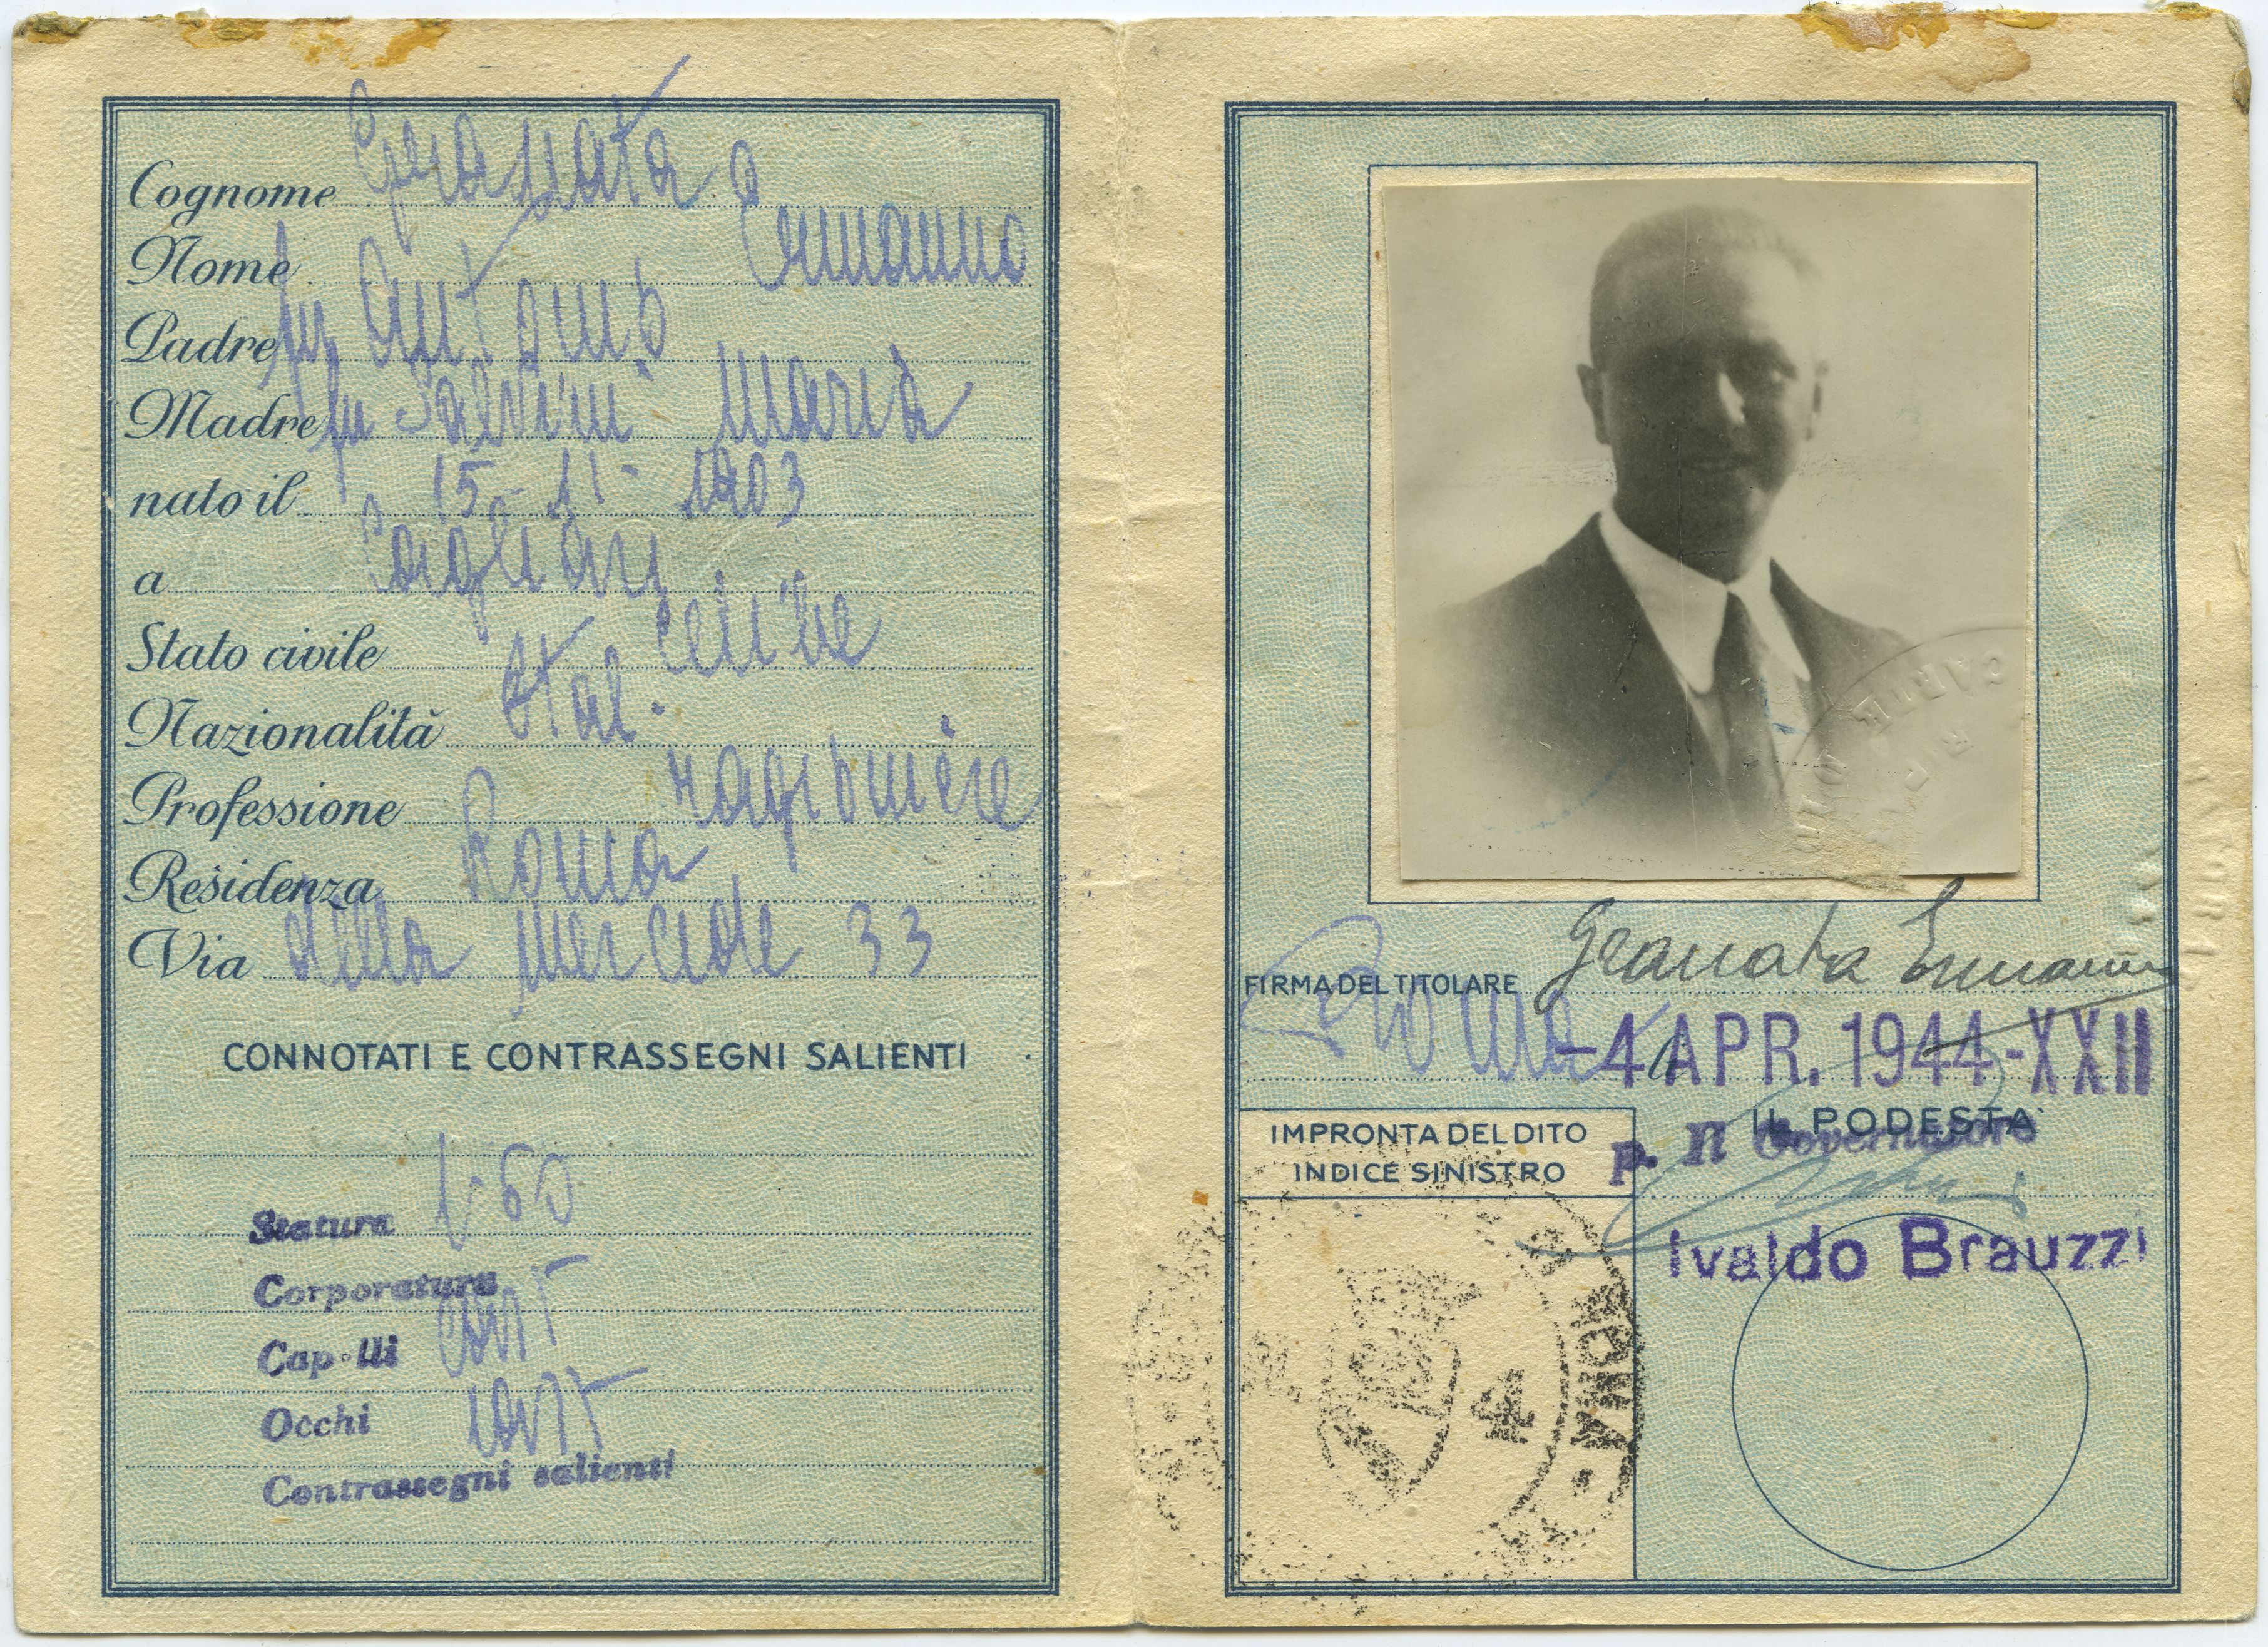 Cognome Granata
Nome Ermanno
Padre fu Antonio
Madre fu Salvini Maria
nato il 15-11-1903
a Cagliari
Stato civile celibe
Nazionalità Ital.
Professione ragioniere
Residenza Roma
Via della Mercede 33
CONNOTATI E CONTRASSEGNI SALIENTI
Statura 1.60
Corporatura
Capelli cast
Occhi cast
Contrassegni salienti
FIRMA DEL TITOLARE Granata Ermanno
Roma -4 APR. 1944-XXII
IL PODESTÀ
p. Il Governatore
IMPRONTA DEL DITO
INDICE SINISTRO
Ivaldo Brauzzi
4
ROMA